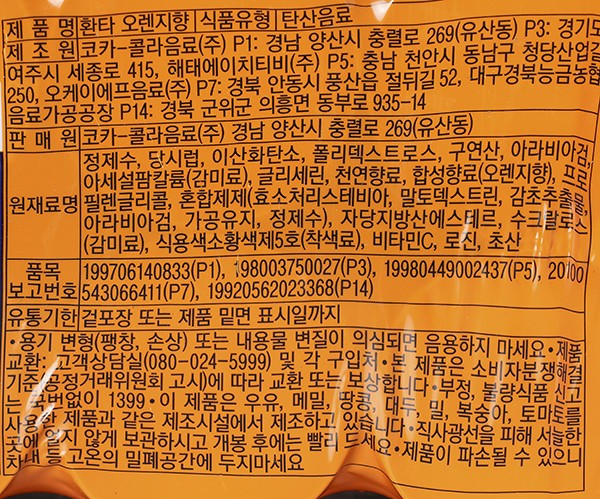 제 품 명 환타 오렌지향 식품유형 탄산음료
제 조 원 코카-콜라음료(주) P1: 경남 양산시 충렬로 269(유산동) P3: 경기도
여주시 세종로 415, 해태에이치티비(주) P5: 충남 천안시 동남구 청당산업길
250, 오케이에프음료(주) P7: 경북 안동시 풍산읍 절뒤길 52, 대구경북능금농협
음료가공공장 P14: 경북 군위군 의흥면 동부로 935-14
판 매 원 코카-콜라음료(주) 경남 양산시 충렬로 269(유산동)
원재료명 정제수, 당시럽, 이산화탄소, 폴리덱스트로스, 구연산, 아라비아검,
아세설팜칼륨(감미료), 글리세린, 천연향료, 합성향료(오렌지향), 프로
필렌글리콜, 혼합제제(효소처리스테비아, 말토덱스트린, 감초추출물,
아라비아검, 가공유지, 정제수), 자당지방산에스테르, 수크랄로스
(감미료), 식용색소황색제5호(착색료), 비타민C, 로진, 초산
품목 보고번호 199706140833(P1), 198003750027(P3), 19980449002437(P5), 20100
543066411(P7), 19920562023368(P14)
유통기한 겉포장 또는 제품 밑면 표시일까지
•용기 변형(팽창, 손상) 또는 내용물 변질이 의심되면 음용하지 마세요•제품
교환: 고객상담실(080-024-5999) 및 각 구입처•본 제품은 소비자분쟁해결
기준(공정거래위원회 고시)에 따라 교환 또는 보상합니다•부정, 불량식품 신고
는 국번없이 1399•이 제품은 우유, 메밀, 땅콩, 대두, 밀, 복숭아, 토마토를
사용한 제품과 같은 제조시설에서 제조하고 있습니다•직사광선을 피해 서늘한
곳에 얼지 않게 보관하시고 개봉 후에는 빨리 드세요•제품이 파손될 수 있으니
차내 등 고온의 밀폐공간에 두지마세요